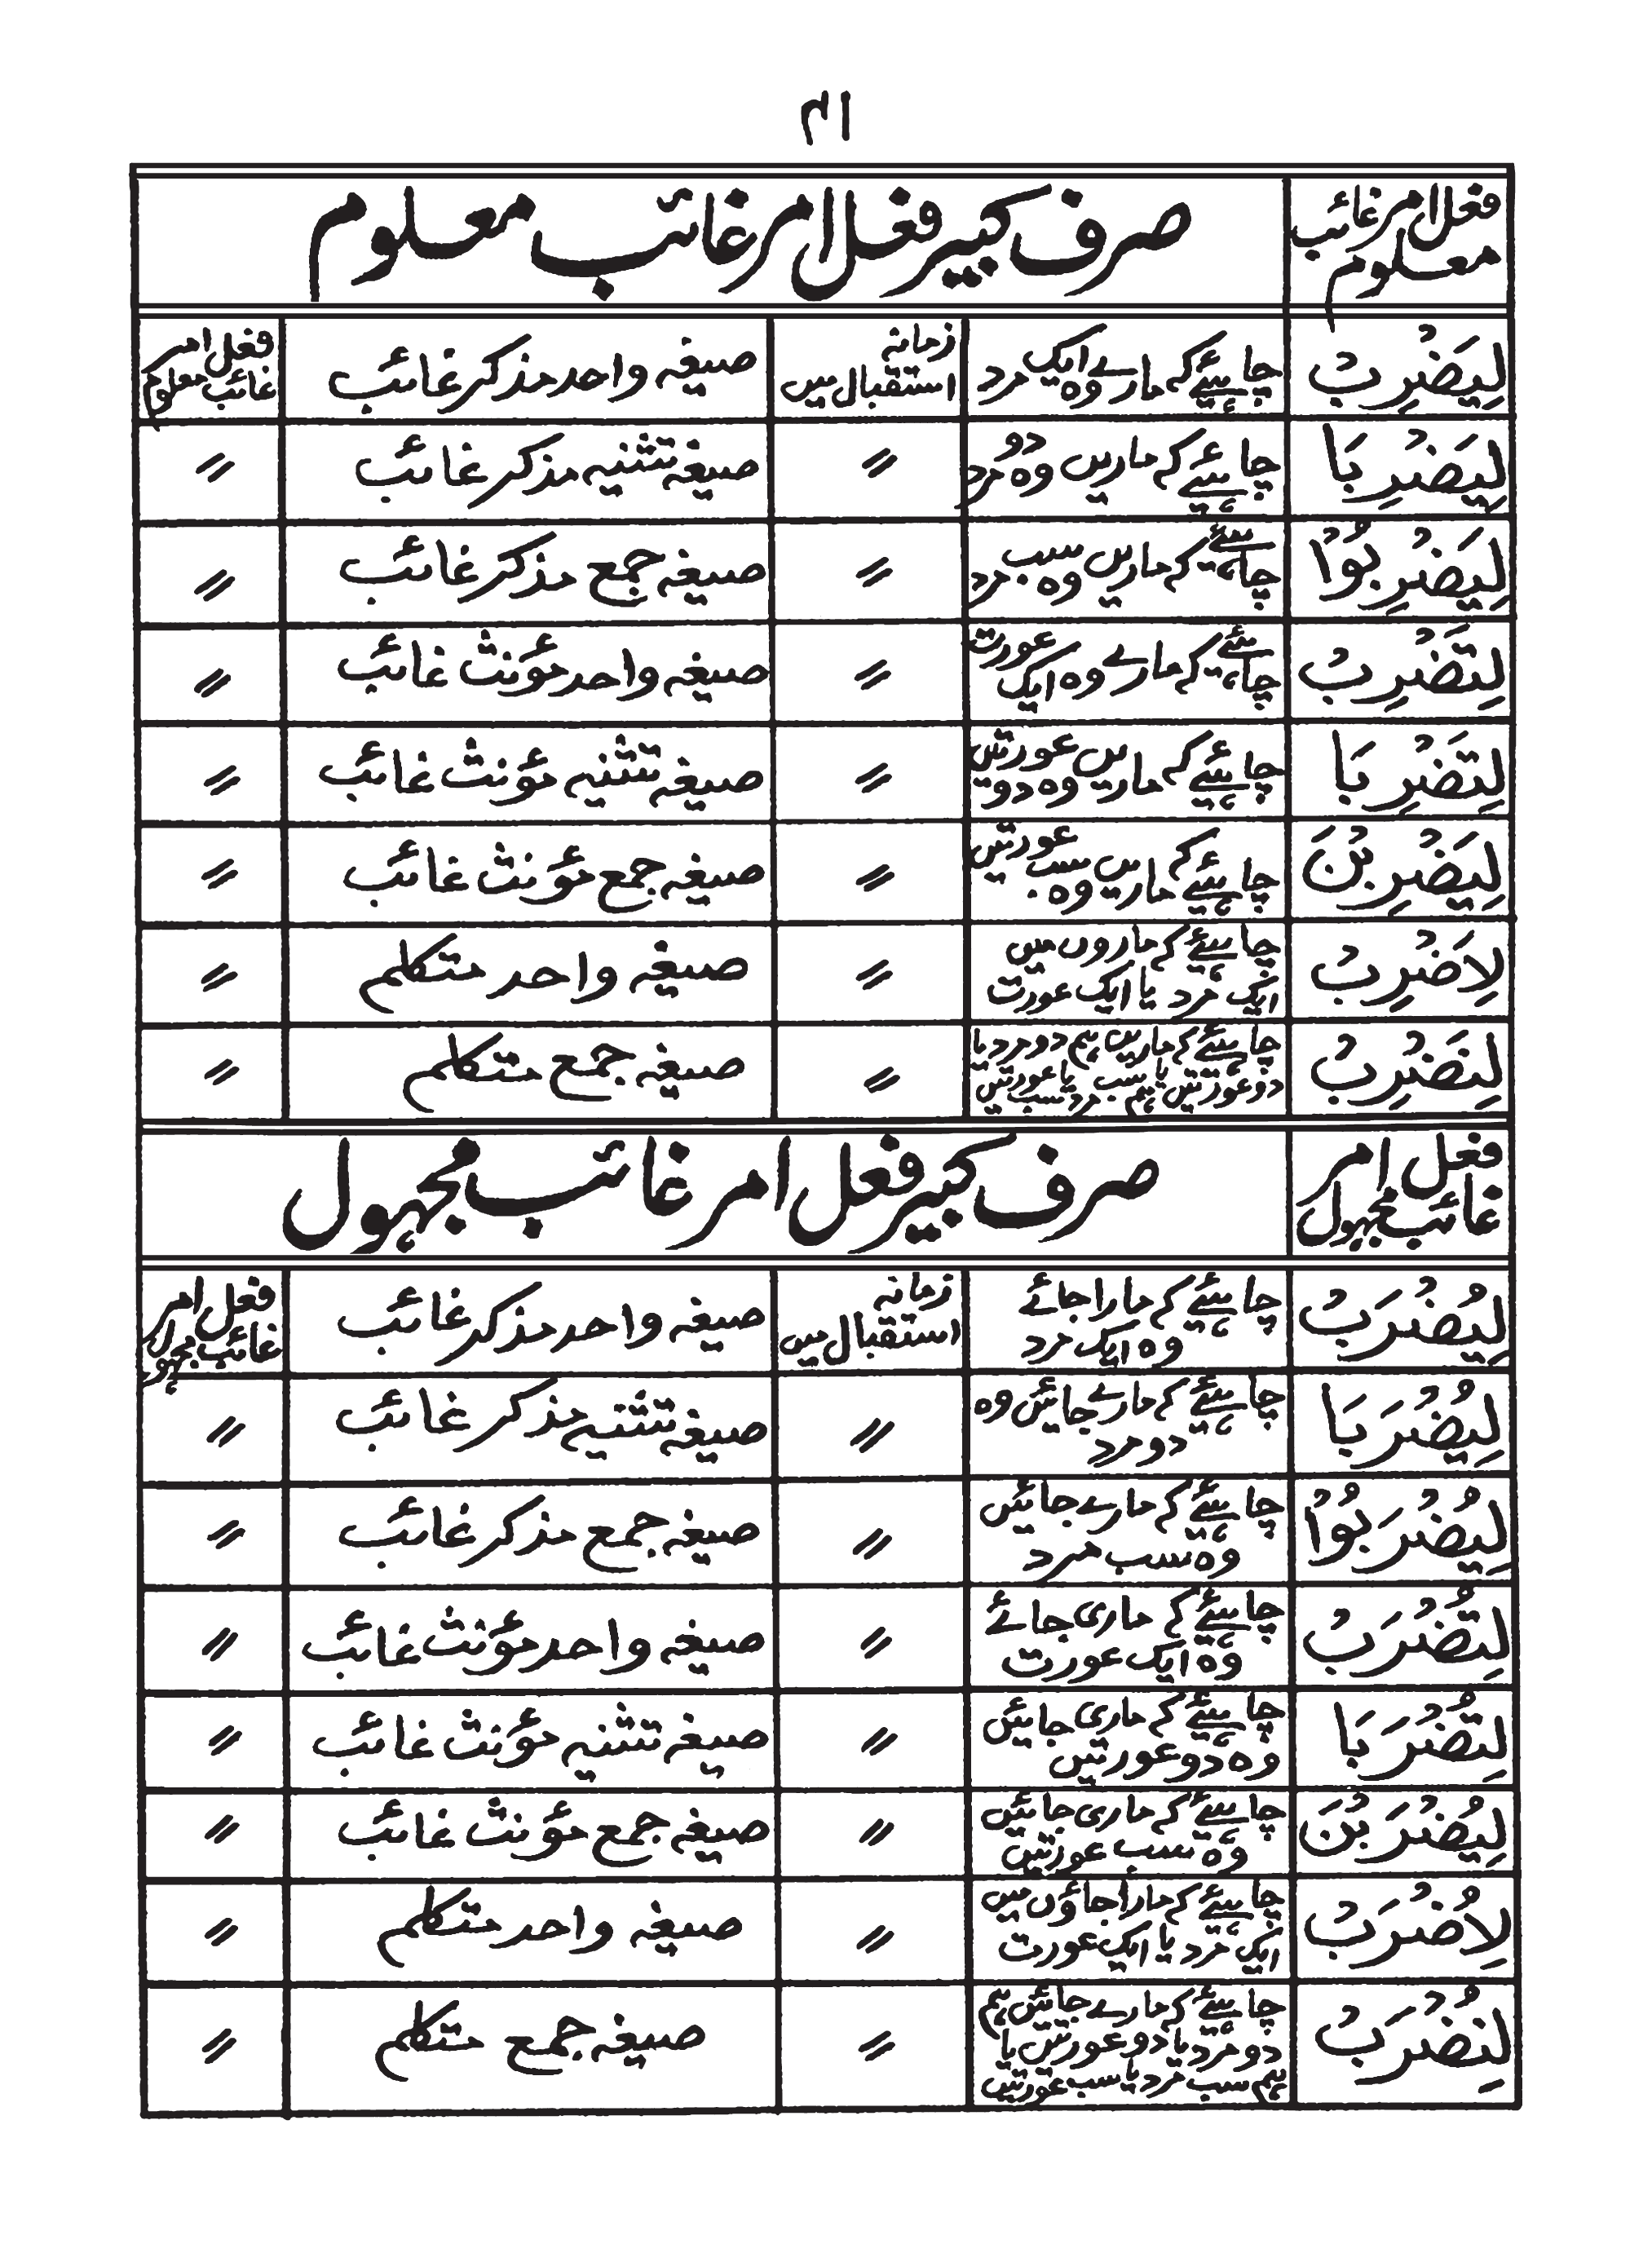 ۴۱
فعل امر غائب معلوم
صرف کبیر فعل امر غائب معلوم
لِيَضْرِبْ چاہیئے کہ مارے وہ ایک مرد زمانہ استقبال میں صیغہ واحد مذکر غائب فعل امر غائب معلوم
لِيَضْرِبَا چاہیئے کہ ماریں وہ دو مرد 〃 صیغہ تثنیہ مذکر غائب 〃
لِيَضْرِبُوْا چاہیئے کہ ماریں وہ سب مرد 〃 صیغہ جمع مذکر غائب 〃
لِتَضْرِبْ چاہیئے کہ مارے وہ ایک عورت 〃 صیغہ واحد مؤنث غائب 〃
لِتَضْرِبَا چاہیئے کہ ماریں وہ دو عورتیں 〃 صیغہ تثنیہ مؤنث غائب 〃
لِيَضْرِبْنَ چاہیئے کہ ماریں وہ سب عورتیں 〃 صیغہ جمع مؤنث غائب 〃
لِاَضْرِبْ چاہیئے کہ ماروں میں ایک مرد یا ایک عورت 〃 صیغہ واحد متکلم 〃
لِنَضْرِبْ چاہیئے کہ ماریں ہم دو مرد یا دو عورتیں یا ہم سب مرد یا سب عورتیں 〃 صیغہ جمع متکلم 〃
فعل امر غائب مجہول
صرف کبیر فعل امر غائب مجہول
لِيُضْرَبْ چاہیئے کہ مارا جائے وہ ایک مرد زمانہ استقبال میں صیغہ واحد مذکر غائب فعل امر غائب مجہول
لِيُضْرَبَا چاہیئے کہ مارے جائیں وہ دو مرد 〃 صیغہ تثنیہ مذکر غائب 〃
لِيُضْرَبُوْا چاہیئے کہ مارے جائیں وہ سب مرد 〃 صیغہ جمع مذکر غائب 〃
لِتُضْرَبْ چاہیئے کہ ماری جائے وہ ایک عورت 〃 صیغہ واحد مؤنث غائب 〃
لِتُضْرَبَا چاہیئے کہ ماری جائیں وہ دو عورتیں 〃 صیغہ تثنیہ مؤنث غائب 〃
لِيُضْرَبْنَ چاہیئے کہ ماری جائیں وہ سب عورتیں 〃 صیغہ جمع مؤنث غائب 〃
لِاُضْرَبْ چاہیئے کہ مارا جاؤں میں ایک مرد یا ایک عورت 〃 صیغہ واحد متکلم 〃
لِنُضْرَبْ چاہیئے کہ مارے جائیں ہم دو مرد یا دو عورتیں یا ہم سب مرد یا سب عورتیں 〃 صیغہ جمع متکلم 〃